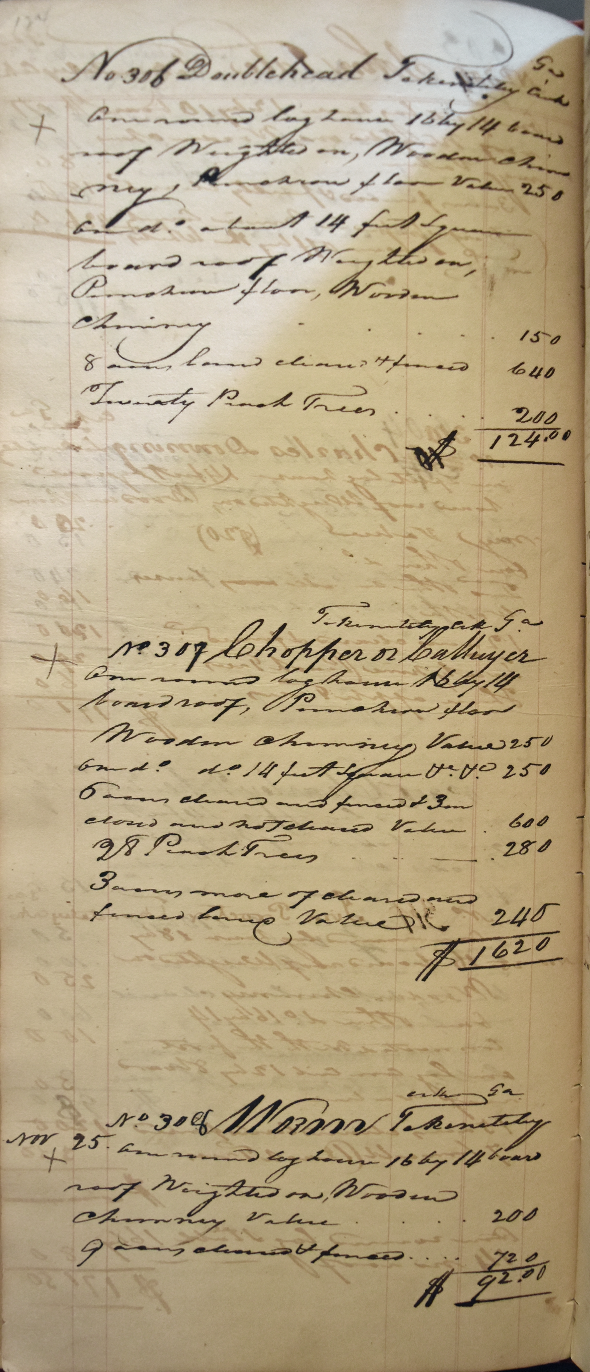 124
Ga
No 306 Doublehead Tekenetely Creek
+ One round log house 16 by 14 board
roof Weighted on, Wooden Chim
ney, Puncheon floor Value 250
One do. about 14 feet Square
board roof Weighted on,
Puncheon floor, Wooden
Chimney . . . . 150
8 acres land clear'd & fenced 640
Twenty Peach Trees . . . . 200
$ 124.00
Tekenetely Creek Ga
+ No 307 Chopper or
One round log house 16 by 14
board roof, Puncheon floor
Wooden Chimney Value 250
One do. do 14 feet Square &c. &c 250
6 acres cleared and fenced & 3 en
closed and not cleared Value . 600
28 Peach Trees . . 280
3 acres more of cleared and
fenced land Value 240
$ 1620
creek Ga
No 308 Worm Tekenetely
Nov 25. One round log house 16 by 14 board
+
roof Weighted on, Wooden
Chimney Value . . . . . 200
9 acres cleared & fenced . . . . 720
$ 92.00